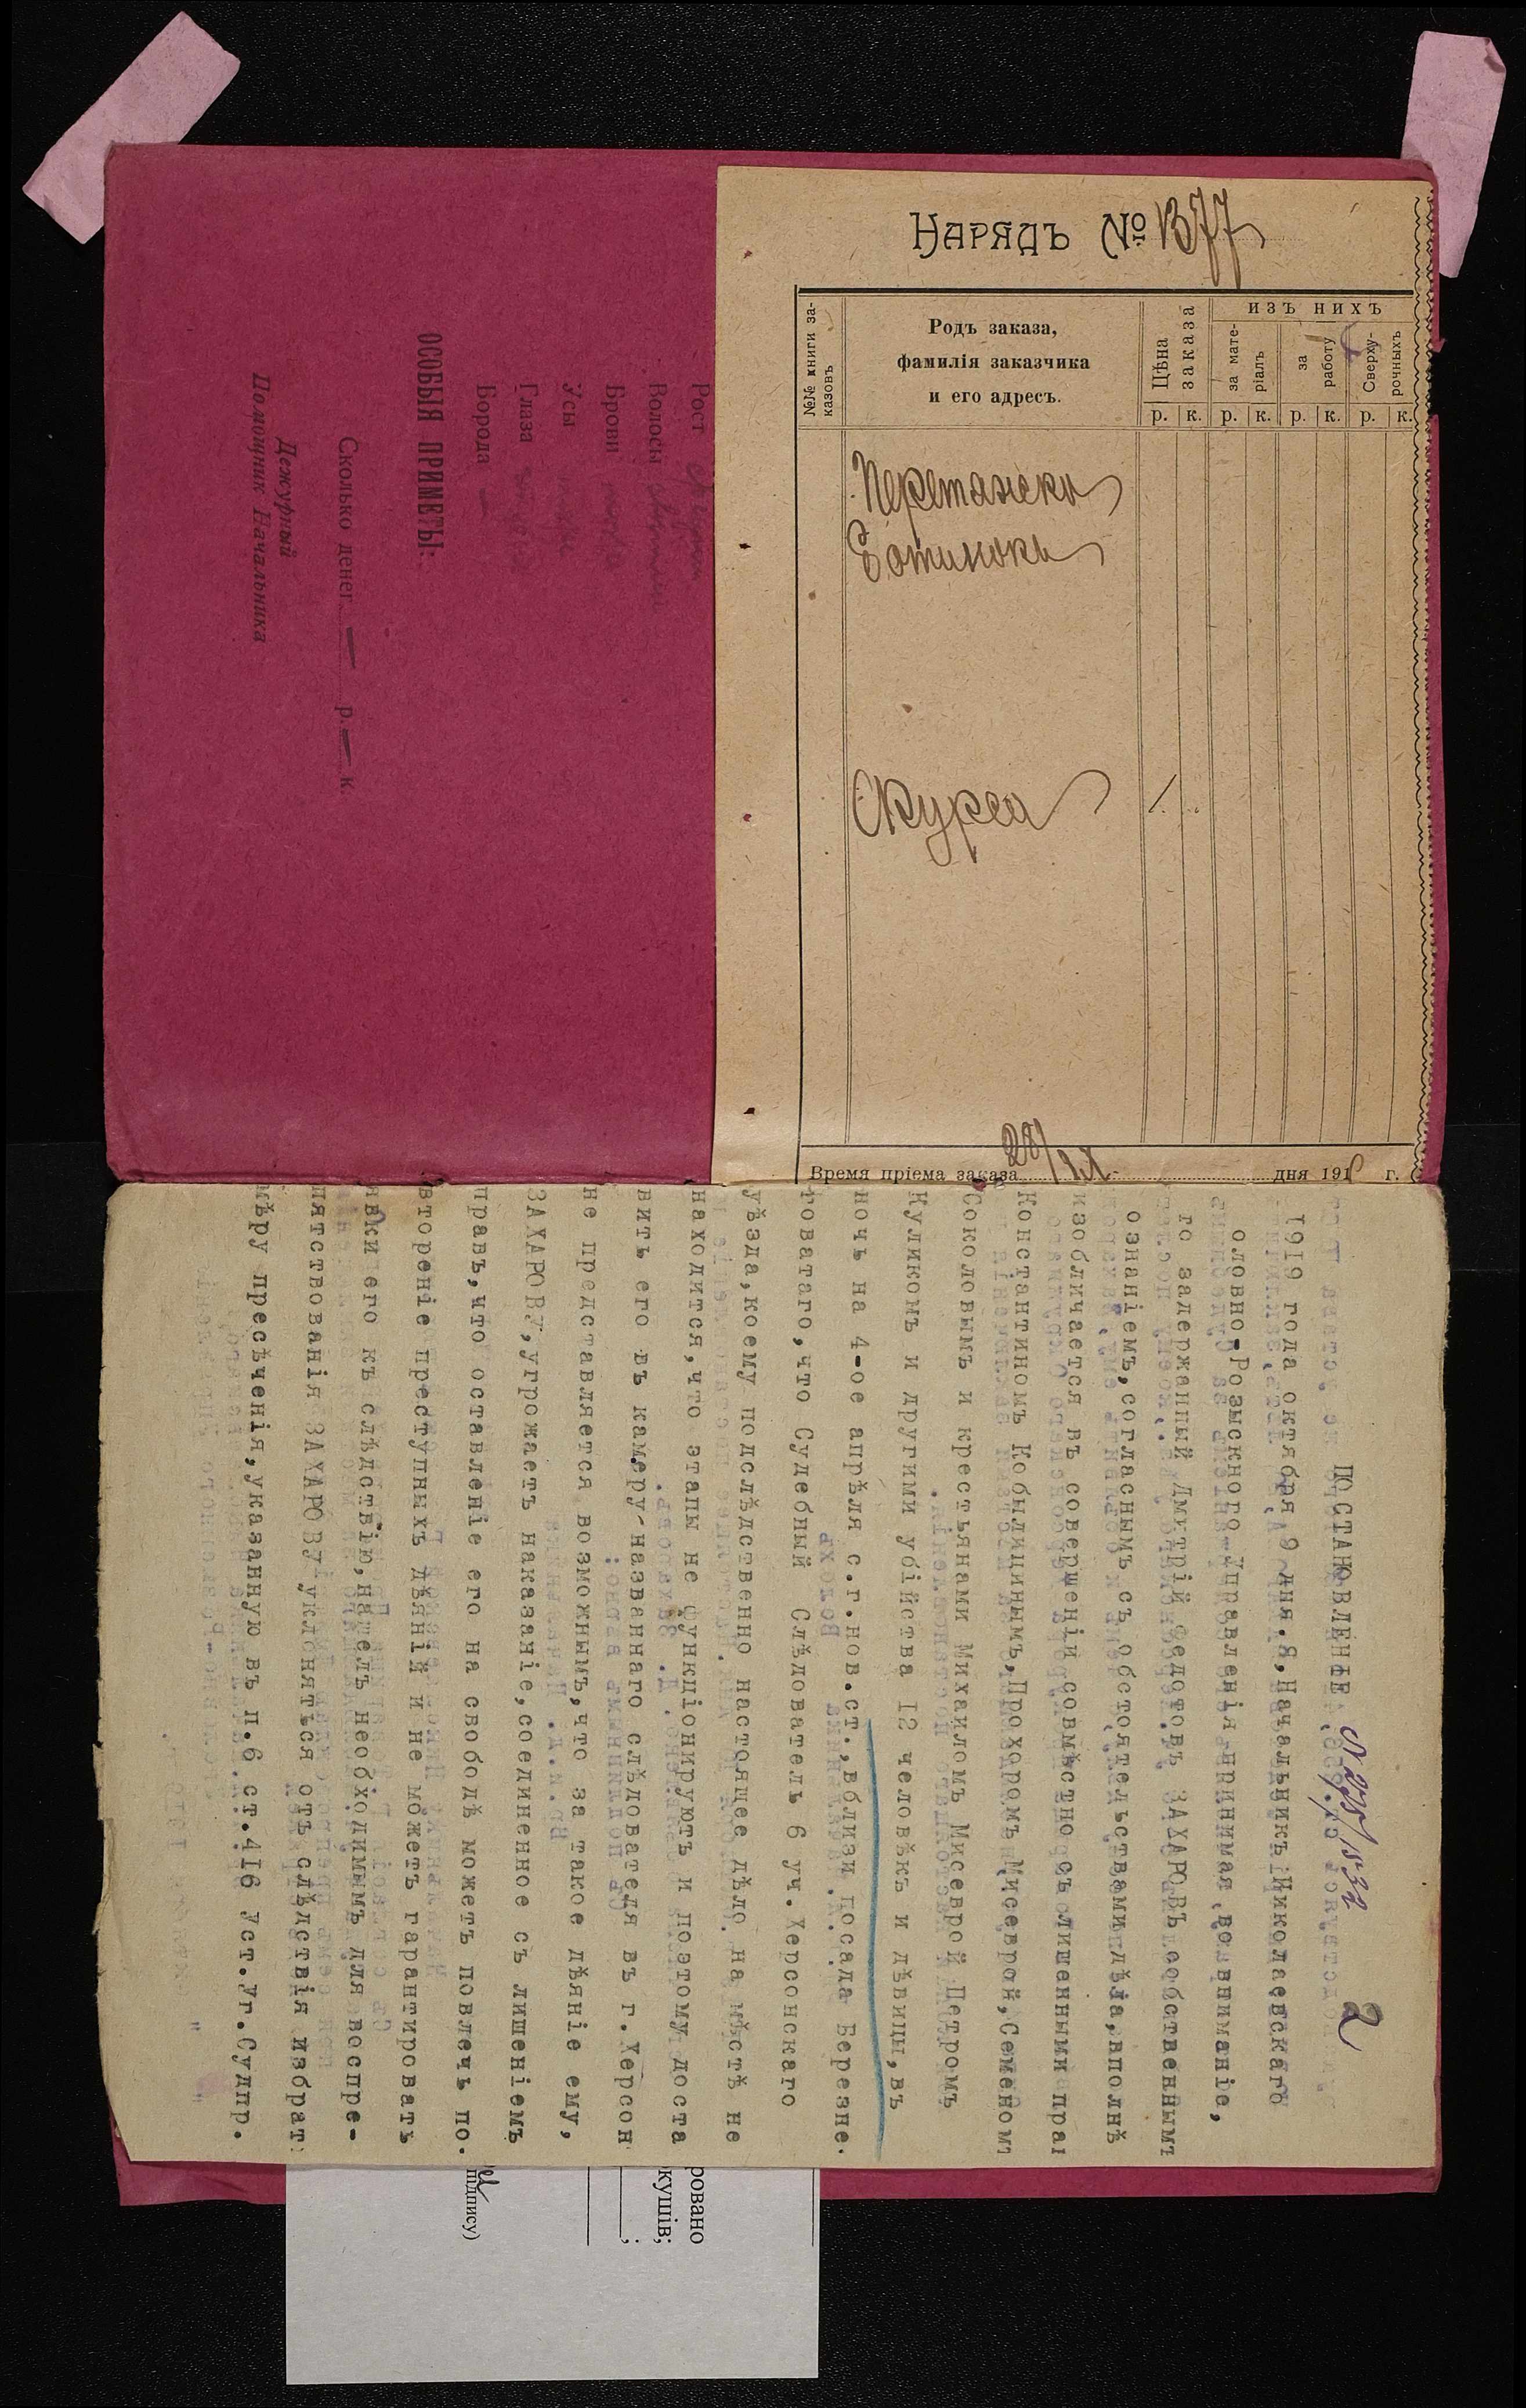 Нарядъ № 1377
№№ книги за-
казовъ
Родъ заказа,
фамилія заказчика
и его адресъ.
Цѣна
заказа
изъ нихъ
за мате-
ріалъ
за
работу
Сверху-
рочныхъ
р. к. р. к. р. к. р. к.
Перетяжка
Ботинокъ
Время пріема заказа 28/IX дня 191 г.
Рост
Волосы
Брови
Усы
Глаза
Борода —
ОСОБЫЯ ПРИМѢТЫ:
Сколько денег — р. — к.
Дежурный
Помощник Начальника
2
ПОСТАНОВЛЕНІЕ
1919 года октября 9 дня. Я, Начальникъ Николаевскаго
оловно-Розыскного Управленія принимая, во вниманіе,
го задержанный Дмитрій Федотовъ ЗАХАРОВЪ собственнымъ
ознаніемъ, согласнымъ съ обстоятельствами дѣла, вполнѣ
изобличается въ совершеніи совмѣстно съ лишенными прав
Константиномъ Кобылицинымъ, Прохоромъ Мисеврой, Семеномъ
Соколовымъ и крестьянами Михаиломъ Мисеврой Петромъ
Куликомъ и другими убійства 12 человѣкъ и дѣвицы, въ
ночь на 4-ое апрѣля с.г. нов.ст., вблизи посада Березне-
говатаго, что Судебный Слѣдователь 6 уч. Херсонскаго
уѣзда, коему подслѣдственно настоящее дѣло на мѣстѣ не
находится, что этапы не функціонируютъ и поэтому доста
вить его въ камеру названнаго слѣдователя въ г. Херсон
не представляется возможнымъ, что за такое дѣяніе ему,
ЗАХАРОВУ, угрожаетъ наказаніе, соединенное съ лишеніемъ
правъ, что оставленіе его на свободѣ можетъ повлечь по-
втореніе преступныхъ дѣяній и не можетъ гарантировать
явки его къ слѣдствію, нашелъ необходимымъ для воспре-
пятствованія ЗАХАРОВУ уклоняться отъ слѣдствія избрать
мѣру пресѣченія, указанную въ п.6 ст.416 Уст.Уг.Судпр.
ровано
кушів;
підпису)